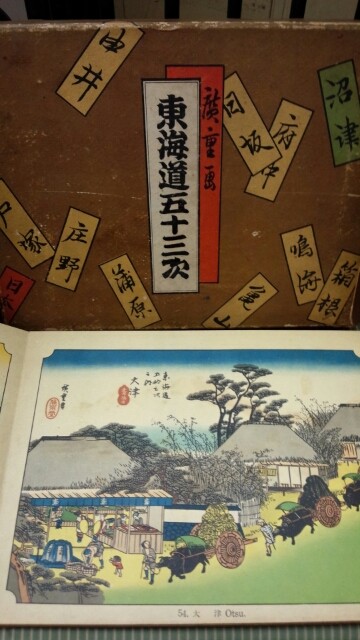 由井
沼津
廣重画
東海道五十三次
日坂
府中
戸塚
庄野
蒲原
亀山
鳴海
箱根
日本
東海道
五拾三次
之内
大津
廣重画
54. 大 津 Otsu.